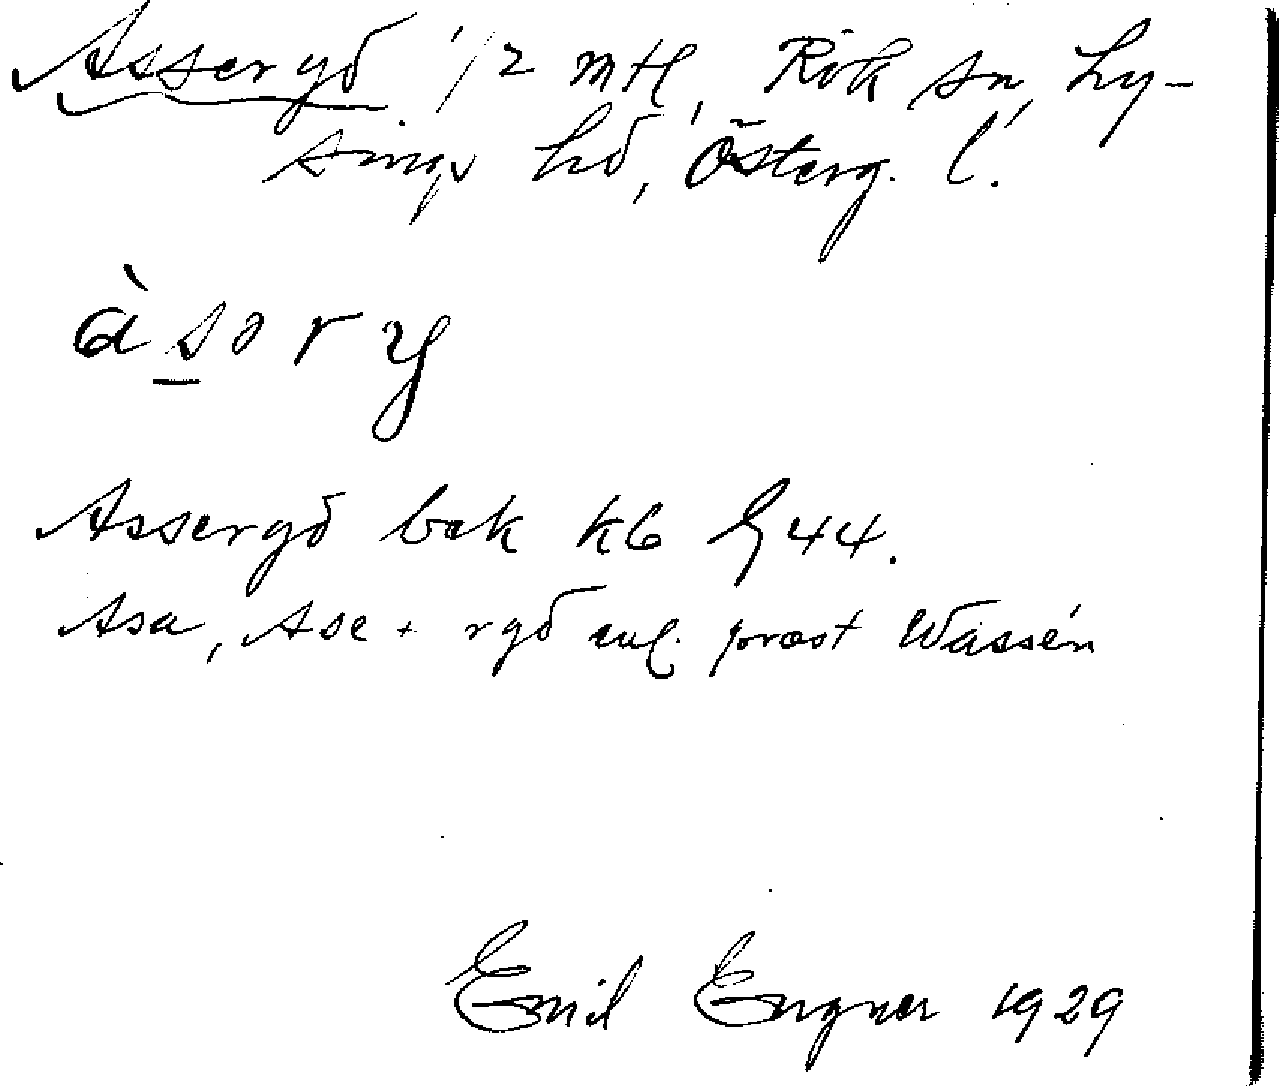 Assergd 1/2 mtl, Rök sn, Ly-
sings hd, Österg. l.
àsəry
Assergd bek kb
Asa, Ase + rgd enl. prost Wassén
Emil Engner 1929